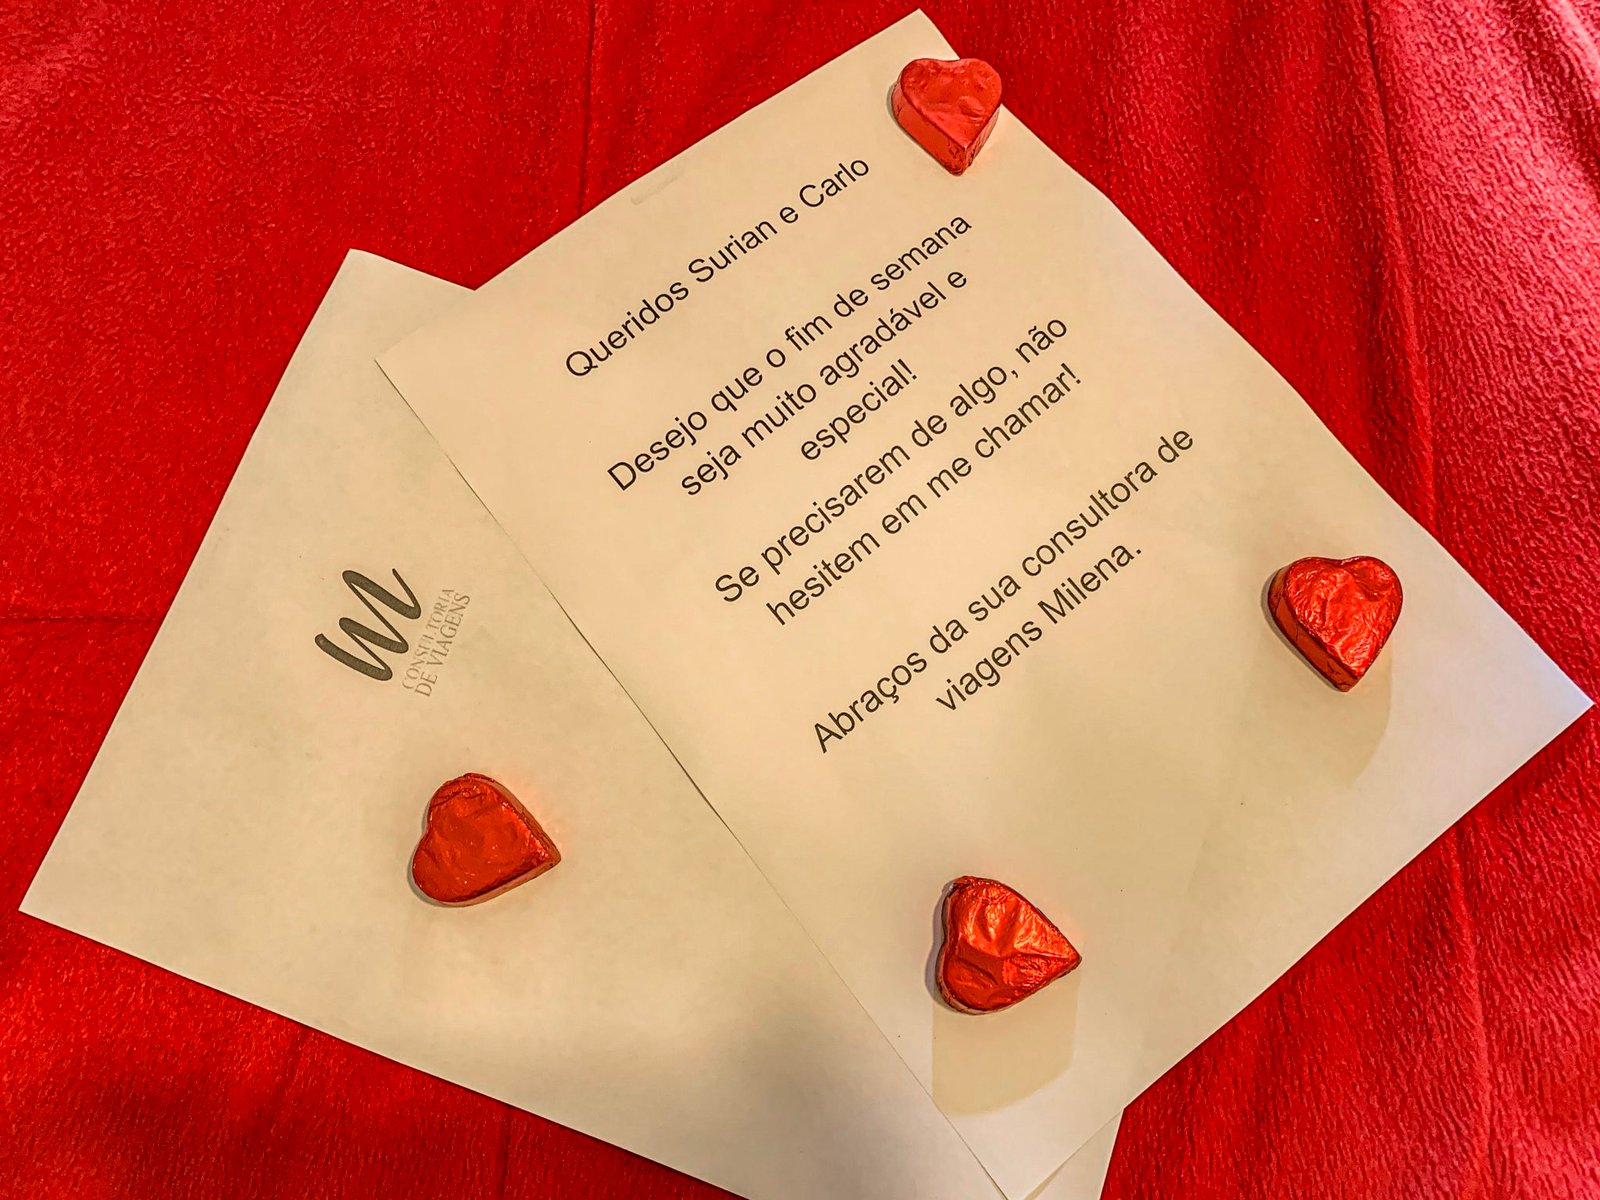 Queridos Surian e Carlo
Desejo que o fim de semana
seja muito agradável e
especial!
Se precisarem de algo, não
hesitem em me chamar!
Abraços da sua consultora de
viagens Milena.
m
CONSULTORIA
DE VIAGENS